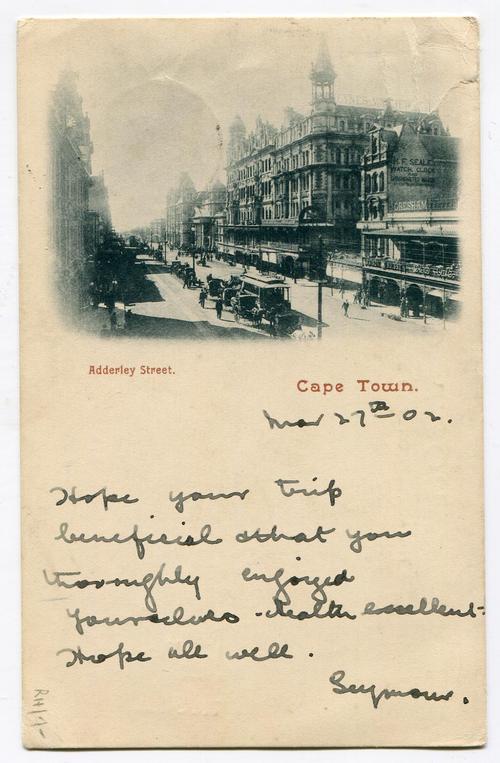 H. F. SEALE
WATCH, CLOCK
GRESHAM
Adderley Street.
Cape Town.
Mar 27th 02.
Hope your trip
beneficial & that you
thoroughly enjoyed
yourselves - health excellent -
Hope all well.
Seymour.
RH/1-